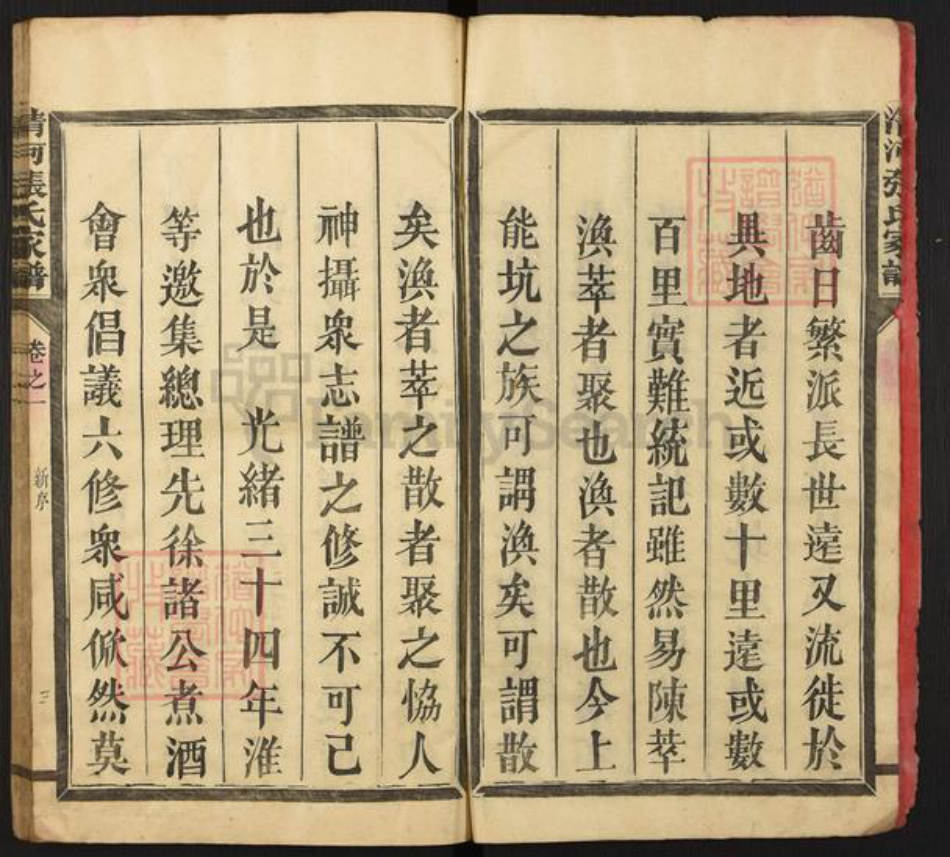 齒日繁派長世遠又流徙於
異地者近或數十里遠或數
百里實難統記雖然易陳萃
渙萃者聚也渙者散也今上
能坑之族可謂渙矣可謂散
矣渙者萃之散者聚之恊人
神攝衆志譜之修誠不可已
也於是　光緒三十四年淮
等邀集總理先徐諸公煮酒
會衆倡議六修衆咸俽然莫
清河張氏家譜
卷之一
新序
三
清河張氏家譜
FamilySearch